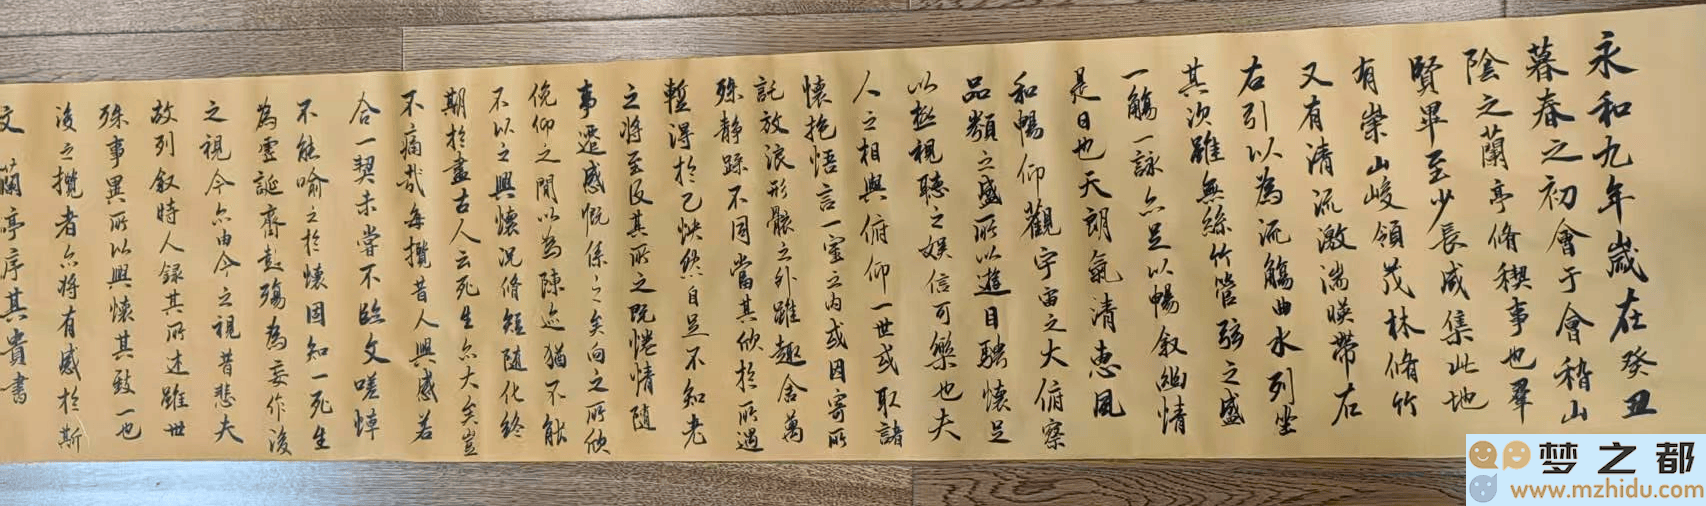 永和九年歲在癸丑
暮春之初會于會稽山
陰之蘭亭脩稧事也羣
賢畢至少長咸集此地
有崇山峻領茂林脩竹
又有清流激湍暎帶左
右引以為流觴曲水列坐
其次雖無絲竹管弦之盛
一觴一詠亦足以暢叙幽情
是日也天朗氣清恵風
和暢仰觀宇宙之大俯察
品類之盛所以遊目騁懷足
以極視聽之娛信可樂也夫
人之相與俯仰一世或取諸
懷抱悟言一室之内或因寄所
託放浪形骸之外雖趣舍萬
殊静躁不同當其欣於所遇
暫得於己怏然自足不知老
之將至及其所之既惓情隨
事遷感慨係之矣向之所欣
俛仰之間以為陳迹猶不能
不以之興懷況脩短隨化終
期於盡古人云死生亦大矣豈
不痛哉每攬昔人興感若
合一契未嘗不臨文嗟悼
不能喻之於懷固知一死生
為虛誕齊彭殤為妄作後
之視今亦由今之視昔悲夫
故列叙時人録其所述雖世
殊事異所以興懷其致一也
後之攬者亦將有感於斯
文 蘭亭序其貴書
梦之都
www.mzhidu.com